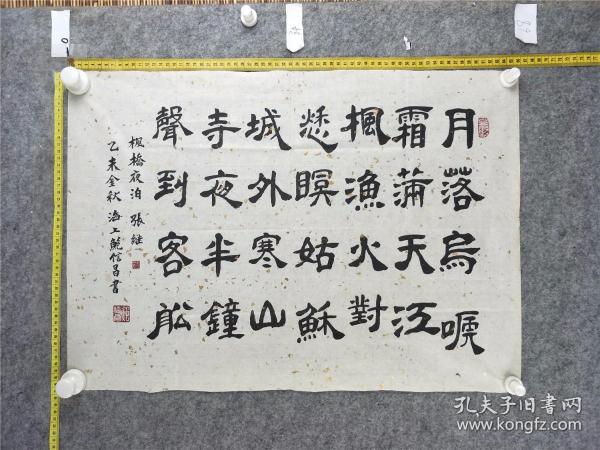 月落烏嗁
霜滿天江
楓漁火對
愁瞑姑穌
城外寒山
寺夜半鐘
聲到客舩
楓橋夜泊 張継
乙未金秋 海上信昌書
孔夫子旧书网
www.kongfz.com